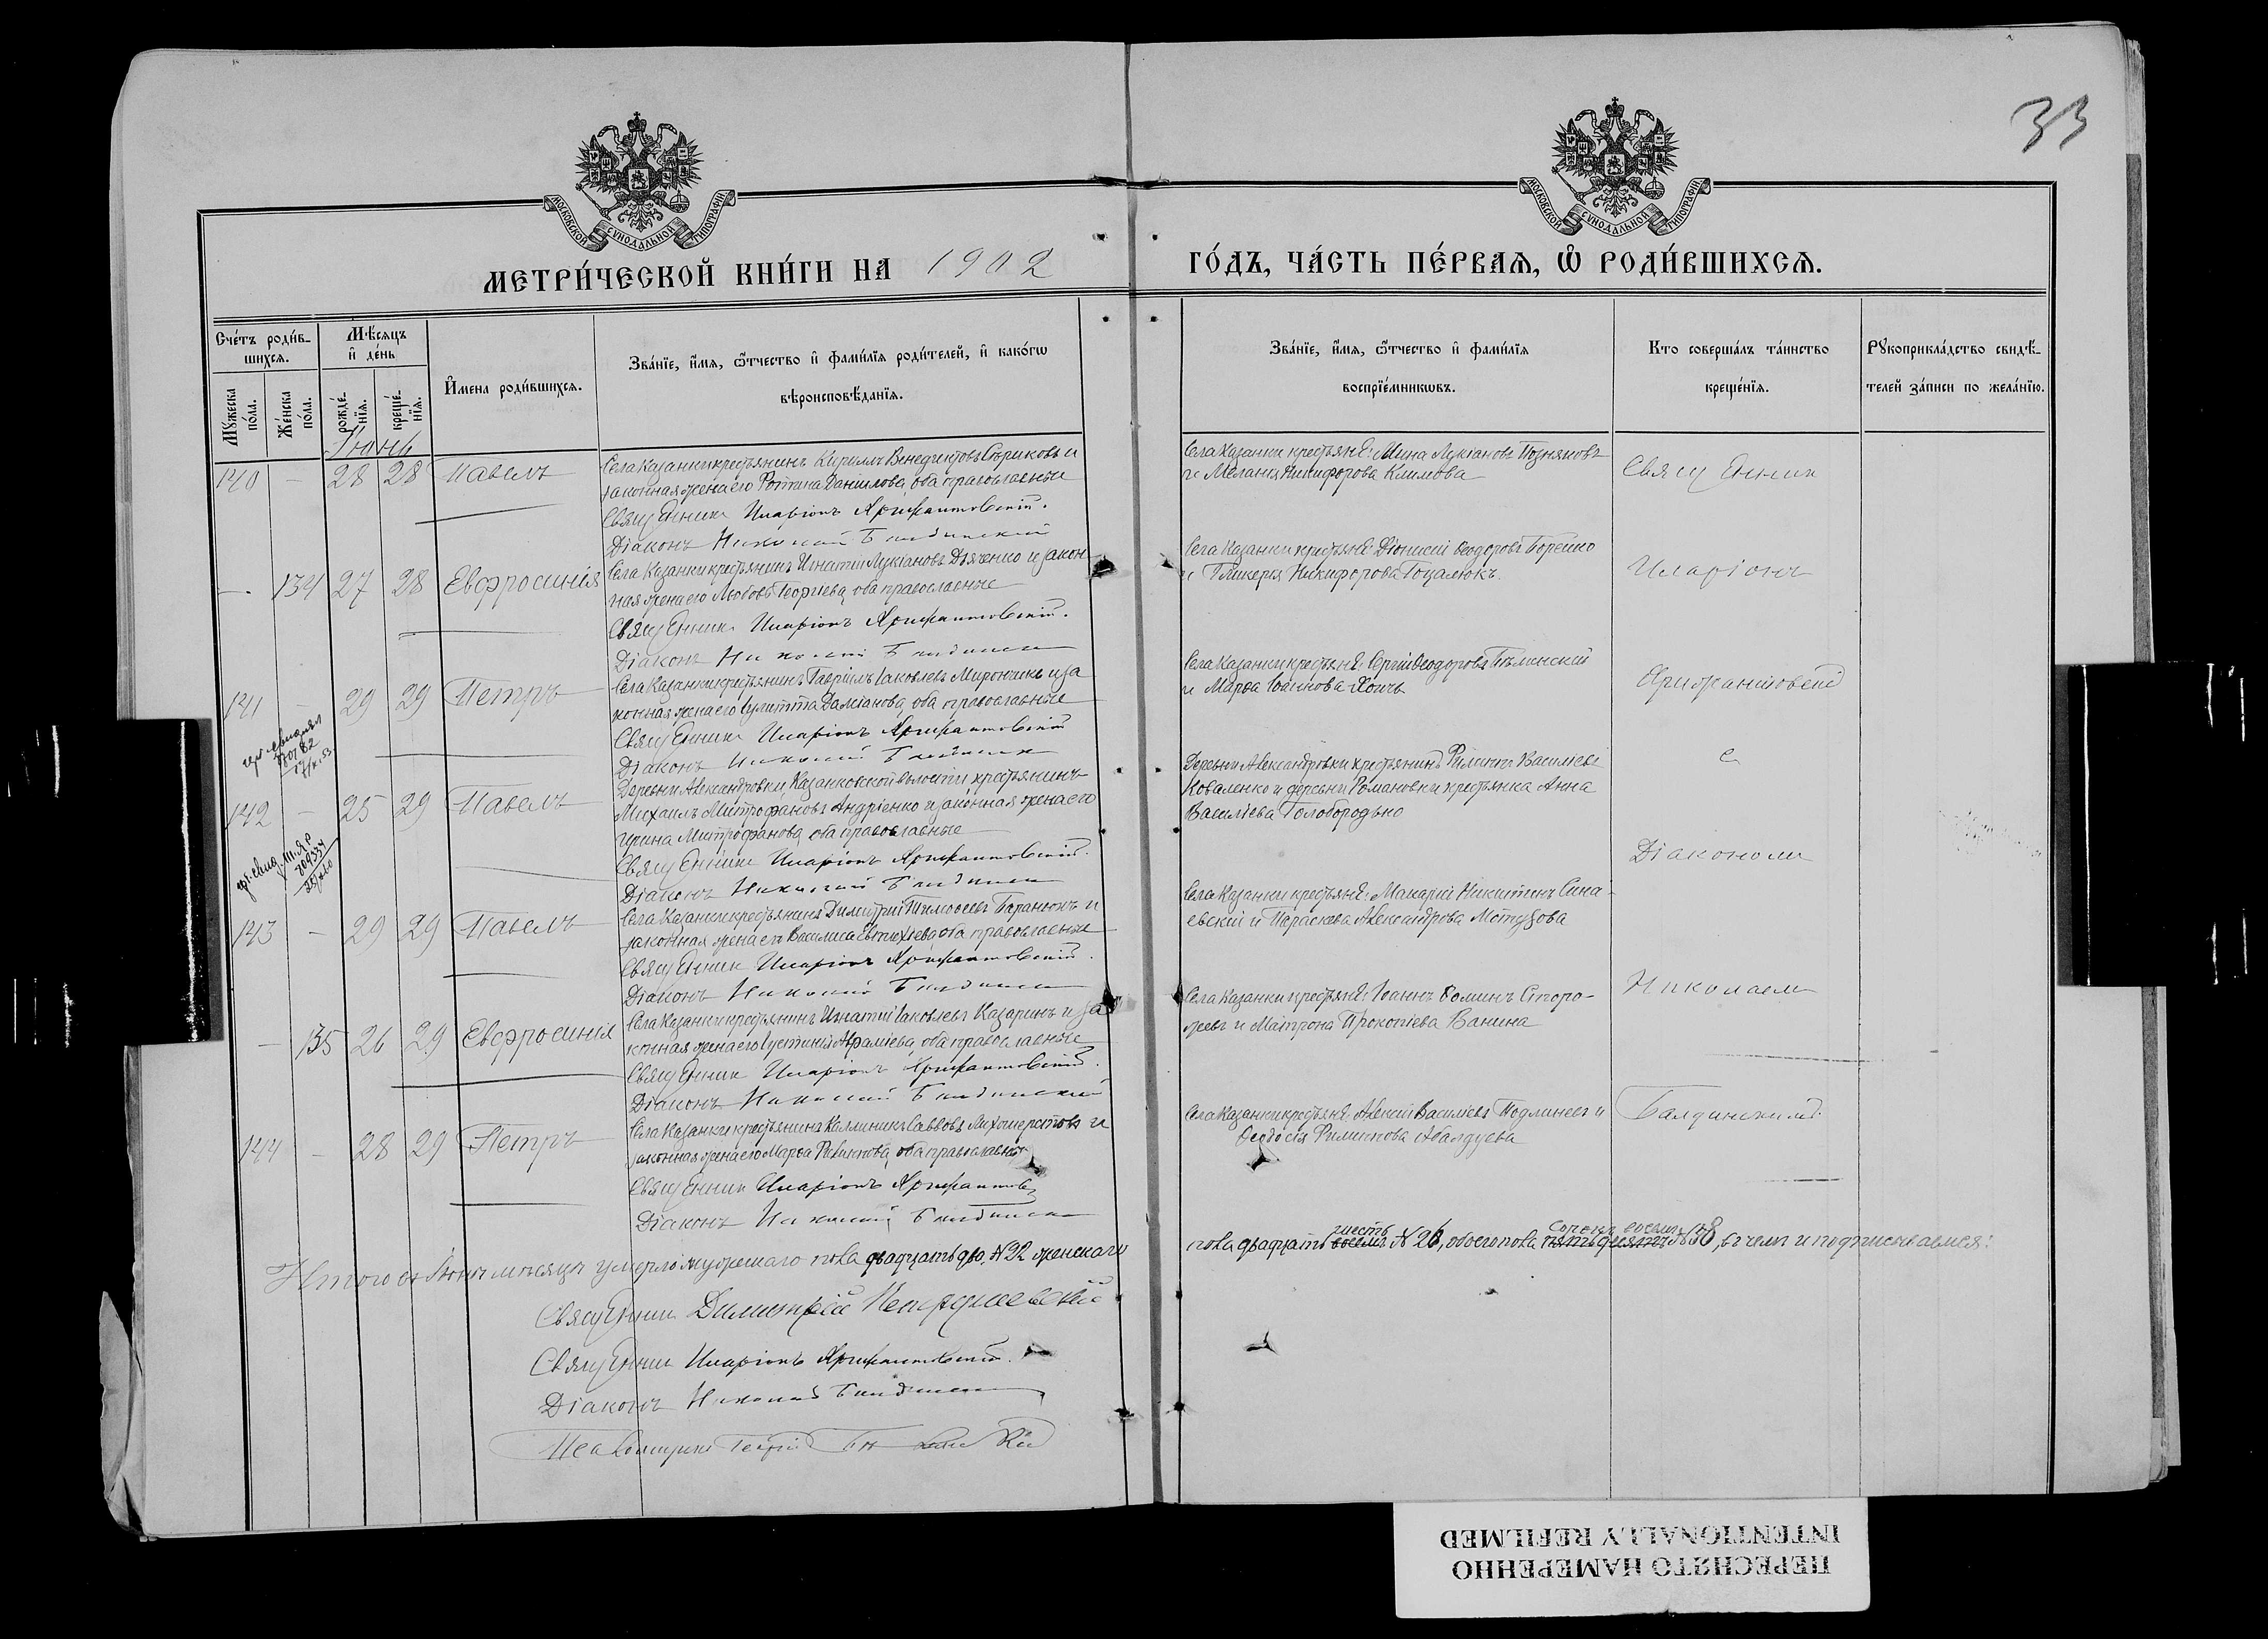 33
МОСКОВСКОЙ СѴНОДАЛЬНОЙ ТИПОГРАФІИ
МОСКОВСКОЙ СѴНОДАЛЬНОЙ ТИПОГРАФІИ
МЕТРИ́ЧЕСКОЙ КНИ́ГИ НА 1902
ГО́ДЪ, ЧА́СТЬ ПЕ́РВАѦ, Ѡ҆ РОДИ́ВШИХСѦ.
Сче́тъ роди́в-
шихсѧ.
Мꙋ́жеска по́ла.
Же́нска по́ла.
Мѣ́сѧцъ
и҆ де́нь
рожде́-
нїѧ.
креще́-
нїѧ.
И҆мена роди́вшихсѧ.
Зва́нїе, и҆́мѧ, ѻ҆́тчество и҆ фами́лїѧ роди́телей, и҆ како́гѡ
вѣроисповѣ́данїѧ.
Зва́нїе, и҆́мѧ, ѻ҆́тчество и҆ фами́лїѧ
воспрїе́мникѡвъ.
Кто соверша́лъ та́инство
креще́нїѧ.
Рꙋкоприкла́дство свидѣ́-
телей за́писи по жела́нїю.
Іюнь
140 — 28 28 Павелъ
Села Казанки крестьянинъ Кириллъ Венедиктовъ Сѣриковъ и
законная жена его Фотина Даниилова, оба православные
Священникъ Иларіонъ
Діаконъ Николай
Села Казанки крестьяне: Мина Лукіановъ Позняковъ
и Меланія Никифорова Климова
Священник
— 134 27 28 Евфросинія
Села Казанки крестьянинъ Игнатій Лукіановъ Дяченко и закон-
ная жена его Любовь Георгіева, оба православные
Священникъ Иларіонъ
Діаконъ Николай
Села Казанки крестьяне: Діонисій Ѳеодоровъ Борейко
и Гликерія Никифорова Гоцалюкъ
Иларіонъ
141 — 29 29 Петръ
Села Казанки крестьянинъ Гавріилъ Іаковлевъ Мирончикъ и за
конная жена его Іулитта Даміанова, оба православные
Священникъ Иларіонъ
Діаконъ Николай
Села Казанки крестьяне: Сергій Ѳеодоровъ Бѣлинскій
и Марѳа Іоаннова
с
142 — 25 29 Павелъ
Деревни Александровки, Казанковской волости крестьянинъ
Михаилъ Митрофановъ Андріенко и законная жена его
Ирина Митрофанова, оба православные
Священникъ Иларіонъ
Діаконъ Николай
Деревни Александровки крестьянинъ Филиппъ Василіевъ
Коваленко и деревни Романовки крестьянка Анна
Василіева Голобородько
Діакономъ
143 — 29 29 Павелъ
Села Казанки крестьянинъ Димитрій Тимоѳеевъ Баранюкъ и
законная жена его Василиса Евтихіева, оба православные
Священникъ Иларіонъ
Діаконъ Николай
Села Казанки крестьяне: Макарій Никитинъ Сина-
евскій и Параскева Александрова Мотузова
Николаемъ
— 135 26 29 Евфросинія
Села Казанки крестьянинъ Игнатій Іаковлевъ Казаринъ и за
конная жена его Іустинія Авраміева, оба православные
Священникъ Иларіонъ
Діаконъ Николай
Села Казанки крестьяне: Іоаннъ Ѳоминъ Сторо-
жевъ и Матрона Прокопіева Ванина
144 — 28 29 Петръ
Села Казанки крестьянинъ Каллиникъ Савовъ Лихошерстовъ и
законная жена его Марѳа Филиппова, оба православные
Священникъ Иларіонъ
Діаконъ Николай
Села Казанки крестьяне: Алексій Василіевъ Подлинеевъ и
Ѳеодосія Филиппова Абалдуева
Итого въ Іюнѣ мѣсяцѣ умерло мужескаго пола двадцать два № 22 женскаго
пола двадцать восемь шесть № 26, обоего пола пятьдесятъ сорокъ восемь № 48, въ чемъ и подписываемся:
Священникъ Димитрій
Священникъ Иларіонъ
Діаконъ Николай
Псаломщикъ Георгій
ПЕРЕСНЯТО НАМЕРЕННО
INTENTIONALLY REFILMED